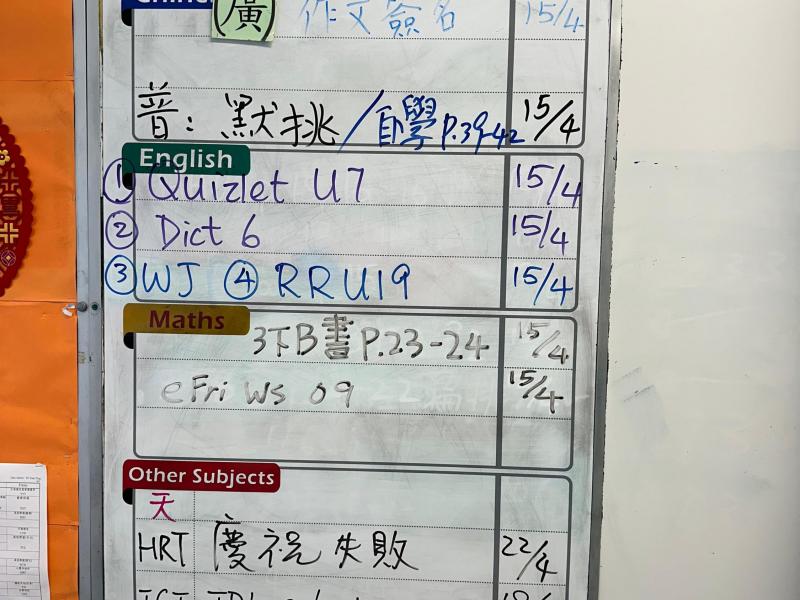 (廣) 作文簽名 15/4
普: 默挑/自學 p.39-42 15/4
English
① Quizlet U7 15/4
② Dict 6 15/4
③ WJ ④ RRU19 15/4
Maths
3下B書 P.23-24 15/4
eFri WS 09 15/4
Other Subjects
天
HRT 慶祝失敗 22/4